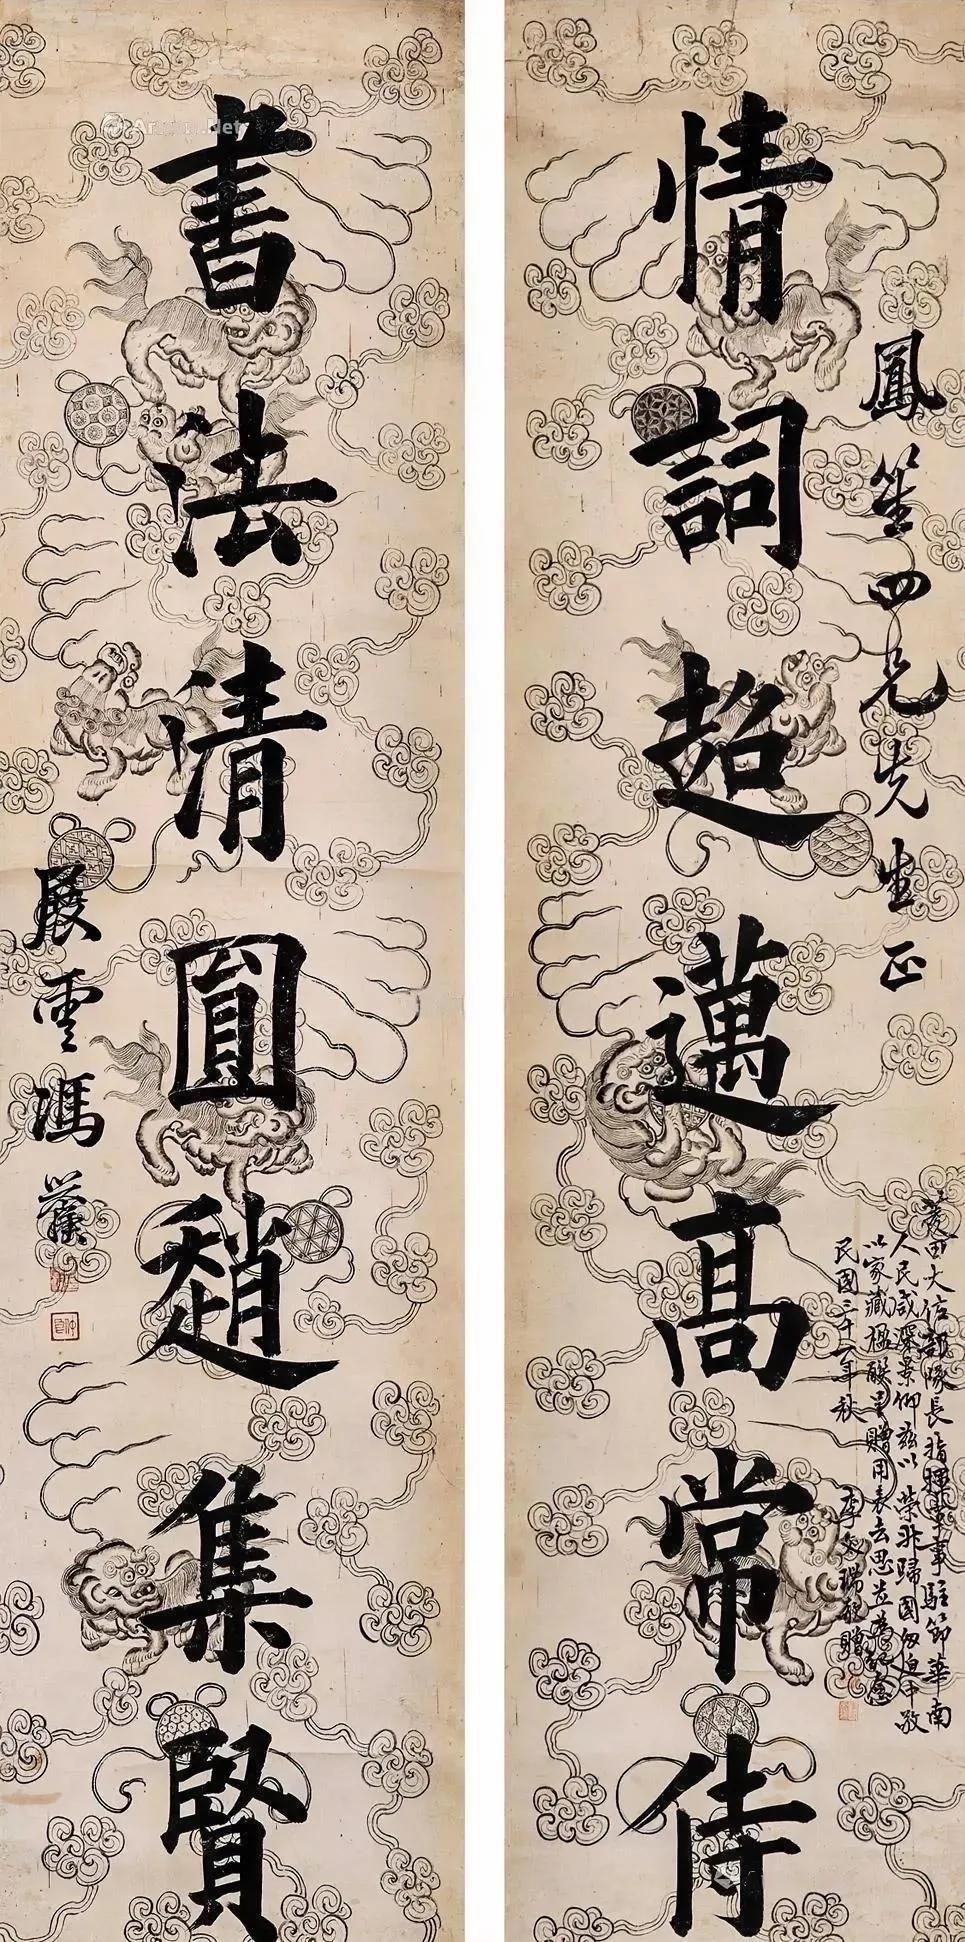 鳳笙四兄先生正
情詞超邁高常侍
菱田大佐部隊長指揮軍事駐節華南
人民咸深景仰茲以榮非歸國匆迫中敬
以家藏楹聯呈贈用表去思並為紀念
民國三十一年秋
李文瑞敬贈
書法清圓趙集賢
展雲馮譽